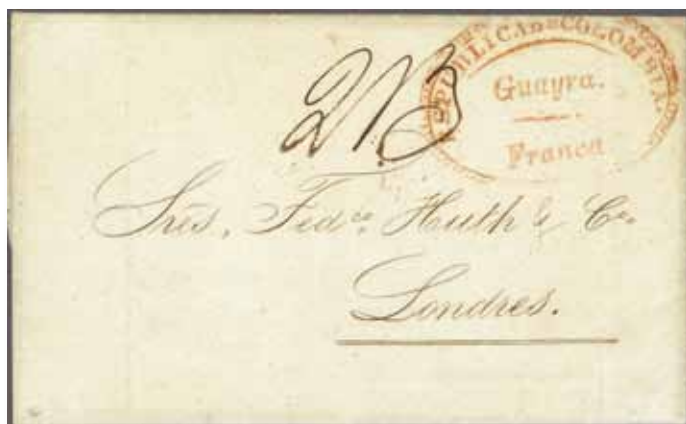 REPUBLICA DE COLOMBIA.
Guayra.
Franca
2/3
Sres. Fedco. Huth & Co.
Londres.